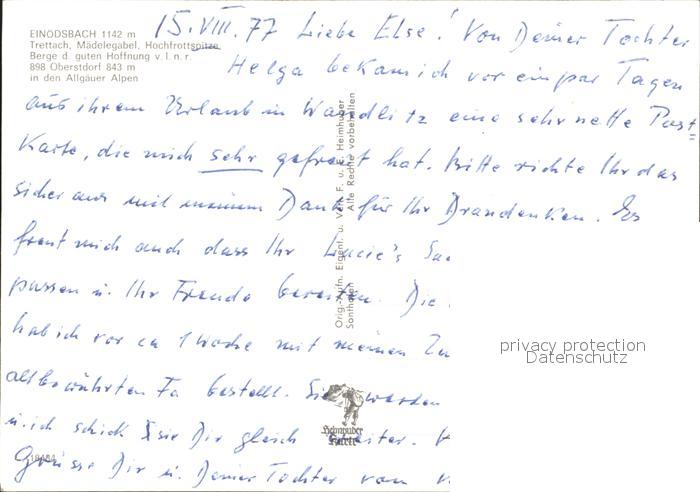 EINODSBACH 1142 m
Trettach, Mädelegabel, Hochfrottspitze
Berge d. guten Hoffnung v. l. n. r.
898 Oberstdorf 843 m
in den Allgäuer Alpen
15. VIII. 77 Liebe Else! Von Deiner Tochter
Helga bekam ich vor ein par Tagen
aus ihrem Urlaub in Wandlitz eine sehr nette Post=
Karte, die mich sehr gefreut hat. Bitte richte Ihr das
sicher aus mit meinem Dank für Ihr Drandenken. Es
freut mich auch dass Ihr Lucie's Sa
passen u. Ihr Freude bereiten. Die
hab ich vor ca 1 Woche mit meinen Zu
altbewährten Fa bestellt. Sie werden
u. ich schick sie Dir gleich weiter.
Grüsse Dir u. Deiner Tochter von
Orig.-Aufn. Eigent. u. Verl. F. u. E. Heimhuber
Sonthofen Alle Rechte vorbehalten
privacy protection
Datenschutz
Heimhuber
Karte